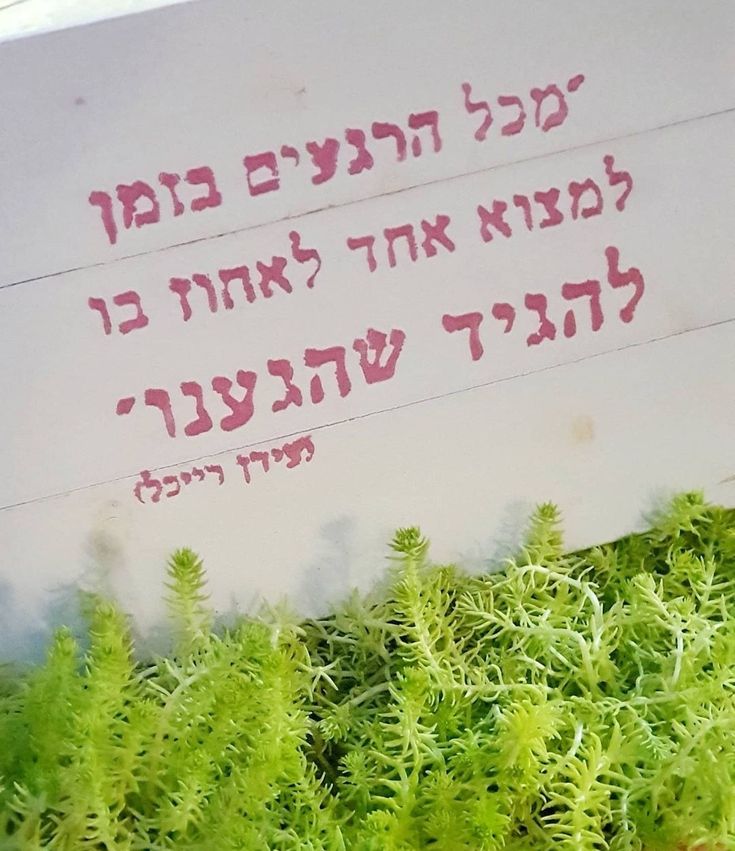 "מכל הרגעים בזמן
למצוא אחד לאחוז בו
להגיד שהגענו"
(עידן רייכל)